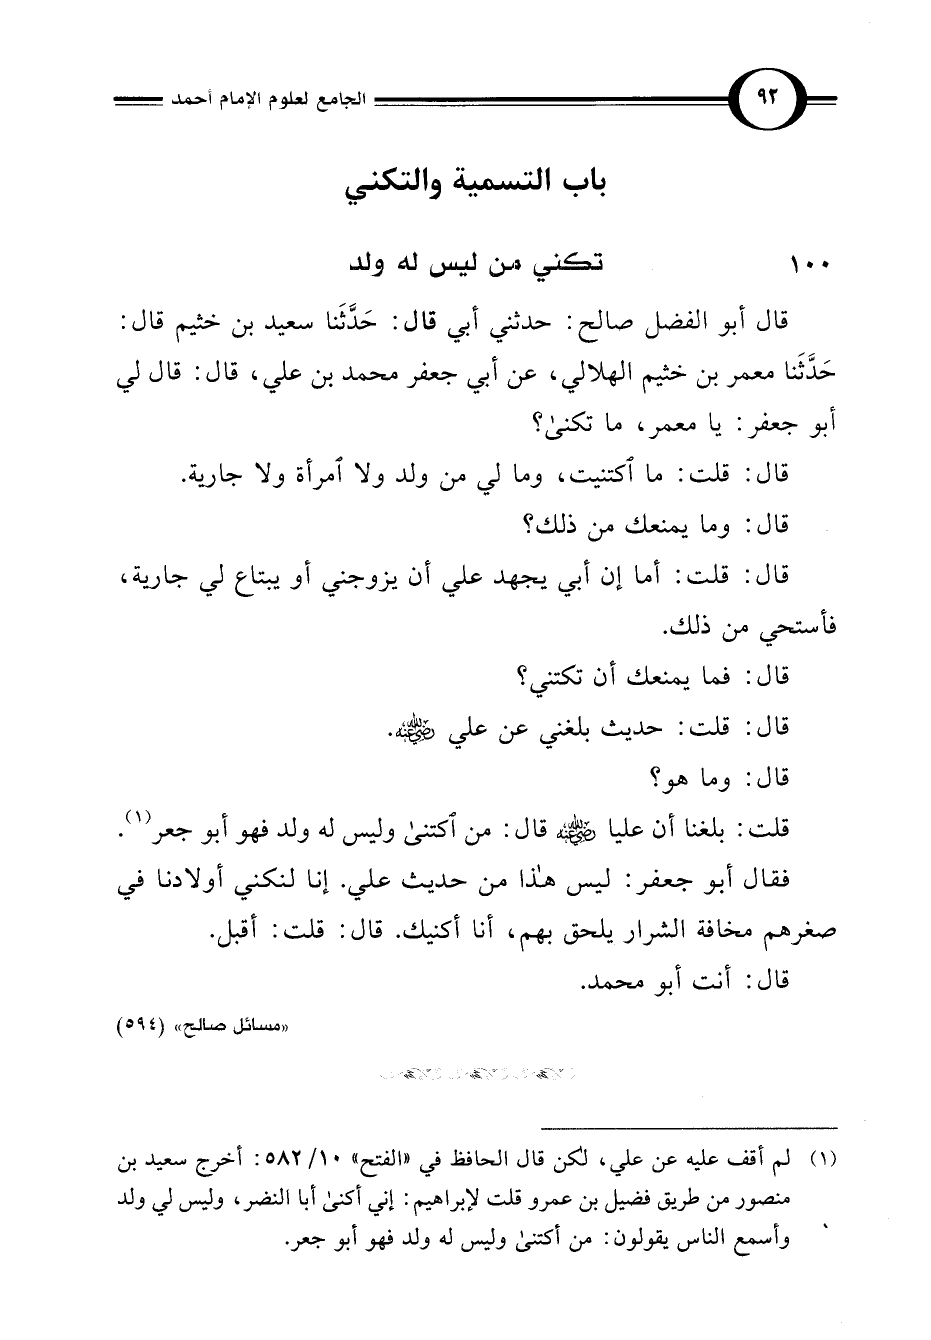 ٩٢ الجامع لعلوم الإمام أحمد
باب التسمية والتكني
١٠٠ تكني من ليس له ولد
قال أبو الفضل صالح: حدثني أبي قال: حَدَّثَنا سعيد بن خثيم قال:
حَدَّثَنا معمر بن خثيم الهلالي، عن أبي جعفر محمد بن علي، قال: قال لي
أبو جعفر: يا معمر، ما تكنىٰ؟
قال: قلت: ما ٱكتنيت، وما لي من ولد ولا ٱمرأة ولا جارية.
قال: وما يمنعك من ذلك؟
قال: قلت: أما إن أبي يجهد علي أن يزوجني أو يبتاع لي جارية،
فأستحي من ذلك.
قال: فما يمنعك أن تكتني؟
قال: قلت: حديث بلغني عن علي رضي الله عنه.
قال: وما هو؟
قلت: بلغنا أن عليا رضي الله عنه قال: من ٱكتنىٰ وليس له ولد فهو أبو جعر(١).
فقال أبو جعفر: ليس هٰذا من حديث علي. إنا لنكني أولادنا في
صغرهم مخافة الشرار يلحق بهم، أنا أكنيك. قال: قلت: أقبل.
قال: أنت أبو محمد.
«مسائل صالح» (٥٩٤)
(١) لم أقف عليه عن علي، لٰكن قال الحافظ في «الفتح» ١٠/ ٥٨٢: أخرج سعيد بن
منصور من طريق فضيل بن عمرو قلت لإبراهيم: إني أكنىٰ أبا النضر، وليس لي ولد
وأسمع الناس يقولون: من أكتنىٰ وليس له ولد فهو أبو جعر.